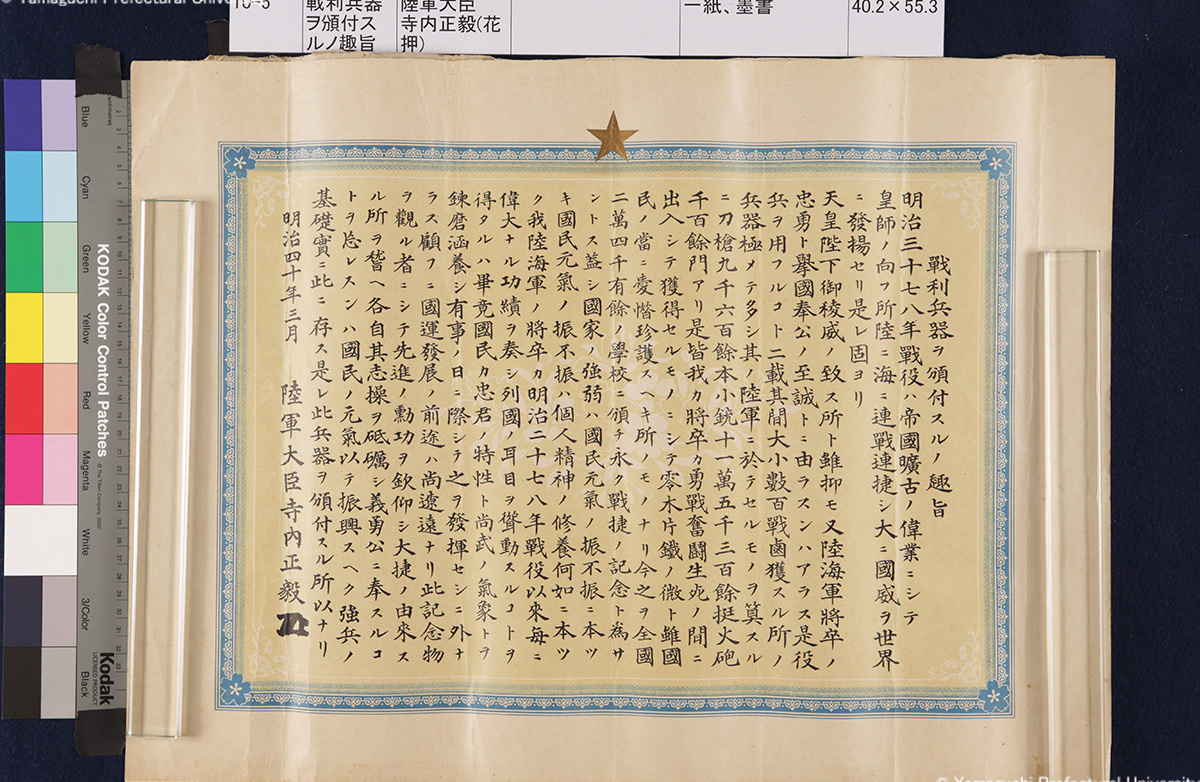 © Yamaguchi Prefectural Univer
10-5
戦利兵器
ヲ頒付ス
ルノ趣旨
陸軍大臣
寺内正毅(花
押)
一紙、墨書
40.2×55.3
戰利兵器ヲ頒付スルノ趣旨
明治三十七八年戰役ハ帝國曠古ノ偉業ニシテ
皇師ノ向フ所陸ニ海ニ連戰連捷シ大ニ國威ヲ世界
ニ發揚セリ是レ固ヨリ
天皇陛下御稜威ノ致ス所ト雖抑モ又陸海軍將卒ノ
忠勇ト擧國奉公ノ至誠トニ由ラスンハアラス是役
兵ヲ用フルコト二載其間大小數百戰鹵獲スル所ノ
兵器極メテ多シ其ノ陸軍ニ於テセルモノヲ算スル
ニ刀槍九千六百餘本小銃十一萬五千三百餘挺火砲
千百餘門アリ是皆我カ將卒カ勇戰奮鬪生死ノ間ニ
出入シテ獲得セルモノニシテ零木片鐵ノ微ト雖國
民ノ當ニ愛惜珍護スヘキ所ノモノナリ今之ヲ全國
二萬四千有餘ノ學校ニ頒チ永ク戰捷ノ記念ト爲サ
ントス蓋シ國家ノ強弱ハ國民元氣ノ振不振ニ本ツ
キ國民元氣ノ振不振ハ個人精神ノ修養何如ニ本ツ
ク我陸海軍ノ將卒カ明治二十七八年戰役以來毎ニ
偉大ナル功績ヲ奏シ列國ノ耳目ヲ聳動スルコトヲ
得タルハ畢竟國民カ忠君ノ特性ト尚武ノ氣象トヲ
錬磨涵養シ有事ノ日ニ際シテ之ヲ發揮セシニ外ナ
ラス顧フニ國運發展ノ前途ハ尚遼遠ナリ此記念物
ヲ觀ル者ニシテ先進ノ勳功ヲ欽仰シ大捷ノ由來ス
ル所ヲ稽ヘ各自其志操ヲ砥礪シ義勇公ニ奉スルコ
トヲ怠レスンハ國民ノ元氣以テ振興スヘク強兵ノ
基礎實ニ此ニ存ス是レ此兵器ヲ頒付スル所以ナリ
明治四十年三月 陸軍大臣寺内正毅
Blue
Cyan
Green
Yellow
Red
Magenta
White
3/Color
Black
KODAK Color Control Patches
Kodak
LICENSED PRODUCT
© Yamaguchi Prefectural Universit